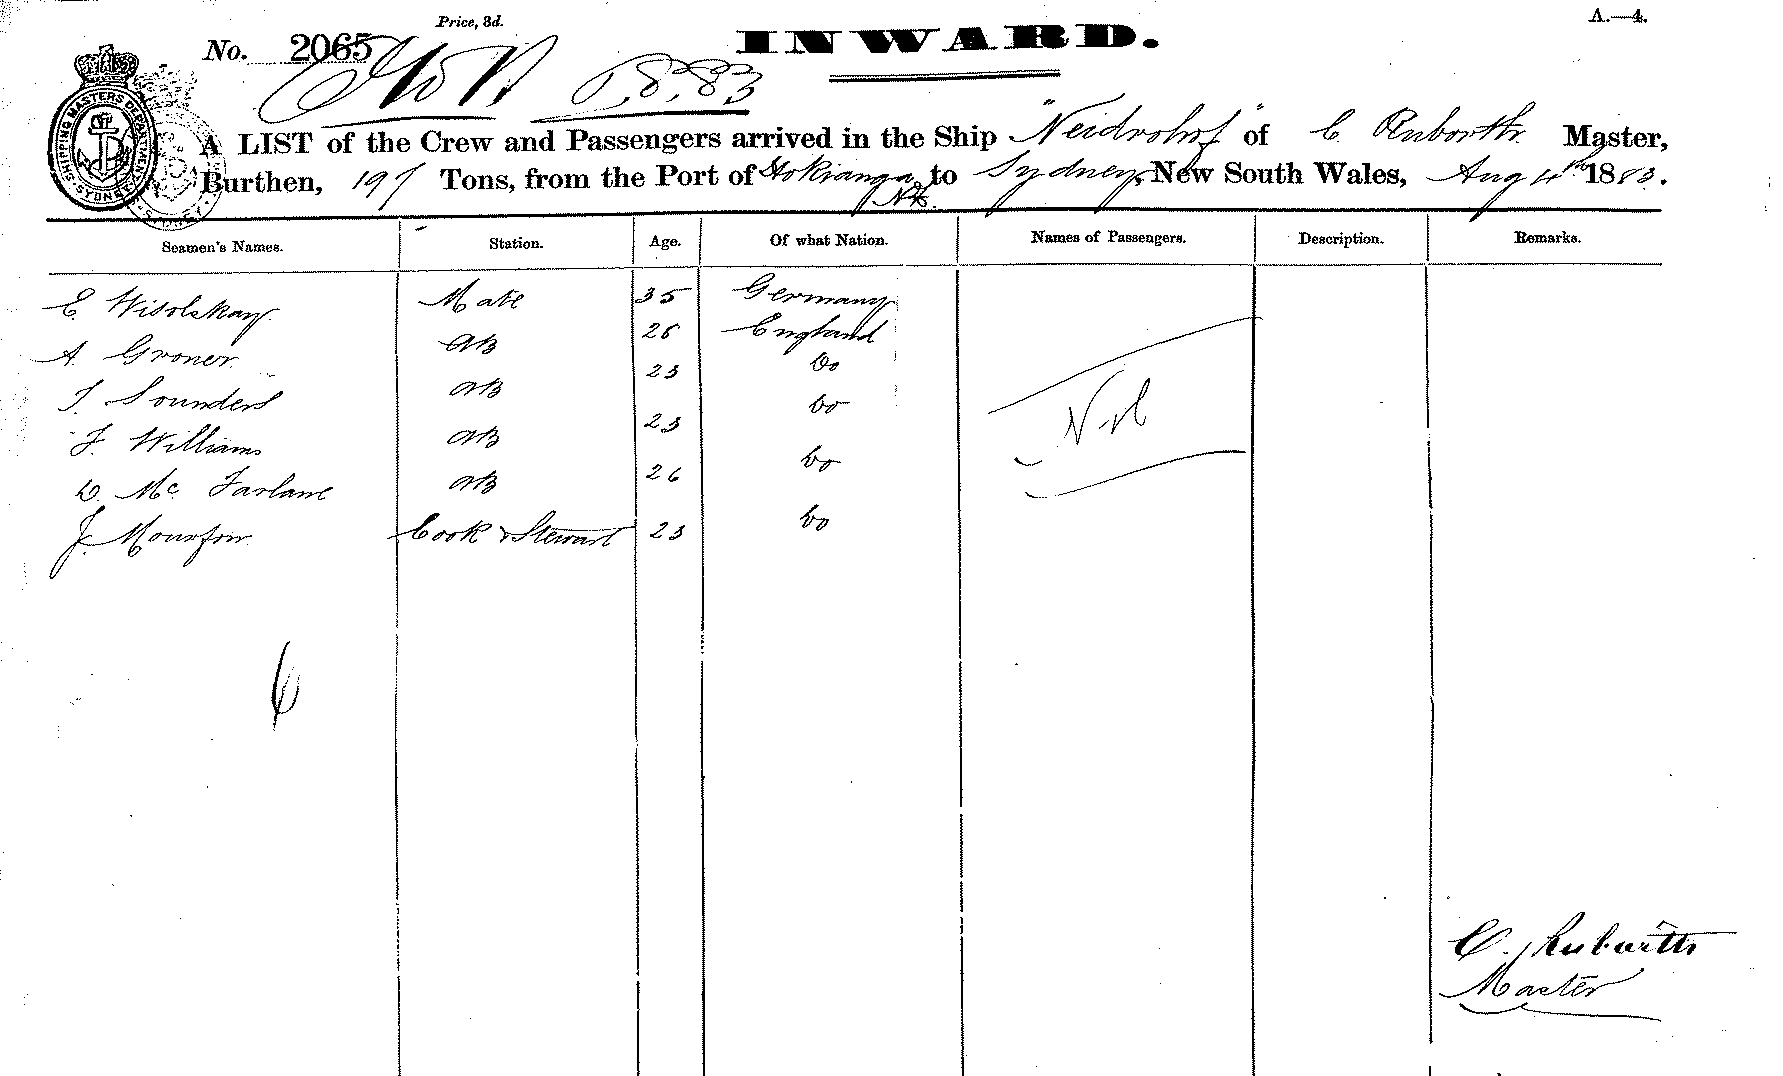 Price, 3d.
A.—4.
No. 2065
INWARD.
8.83
SHIPPING MASTERS DEPARTMENT SYDNEY
A LIST of the Crew and Passengers arrived in the Ship "Neidvohof" of C Ruborth Master,
Burthen, 197 Tons, from the Port of Hokianga NZ. to Sydney, New South Wales, Aug 4th 1883.
Seamen's Names. Station. Age. Of what Nation. Names of Passengers. Description. Remarks.
E. Wisolskay Mate 35 Germany
A. Groner AB 26 England
T. Sounders AB 23 Do
F. Williams AB 23 Do
D. Mc. Farlane AB 26 Do
J. Cook & Stewart 23 Do
Nil
6
C. Rubarth
Master